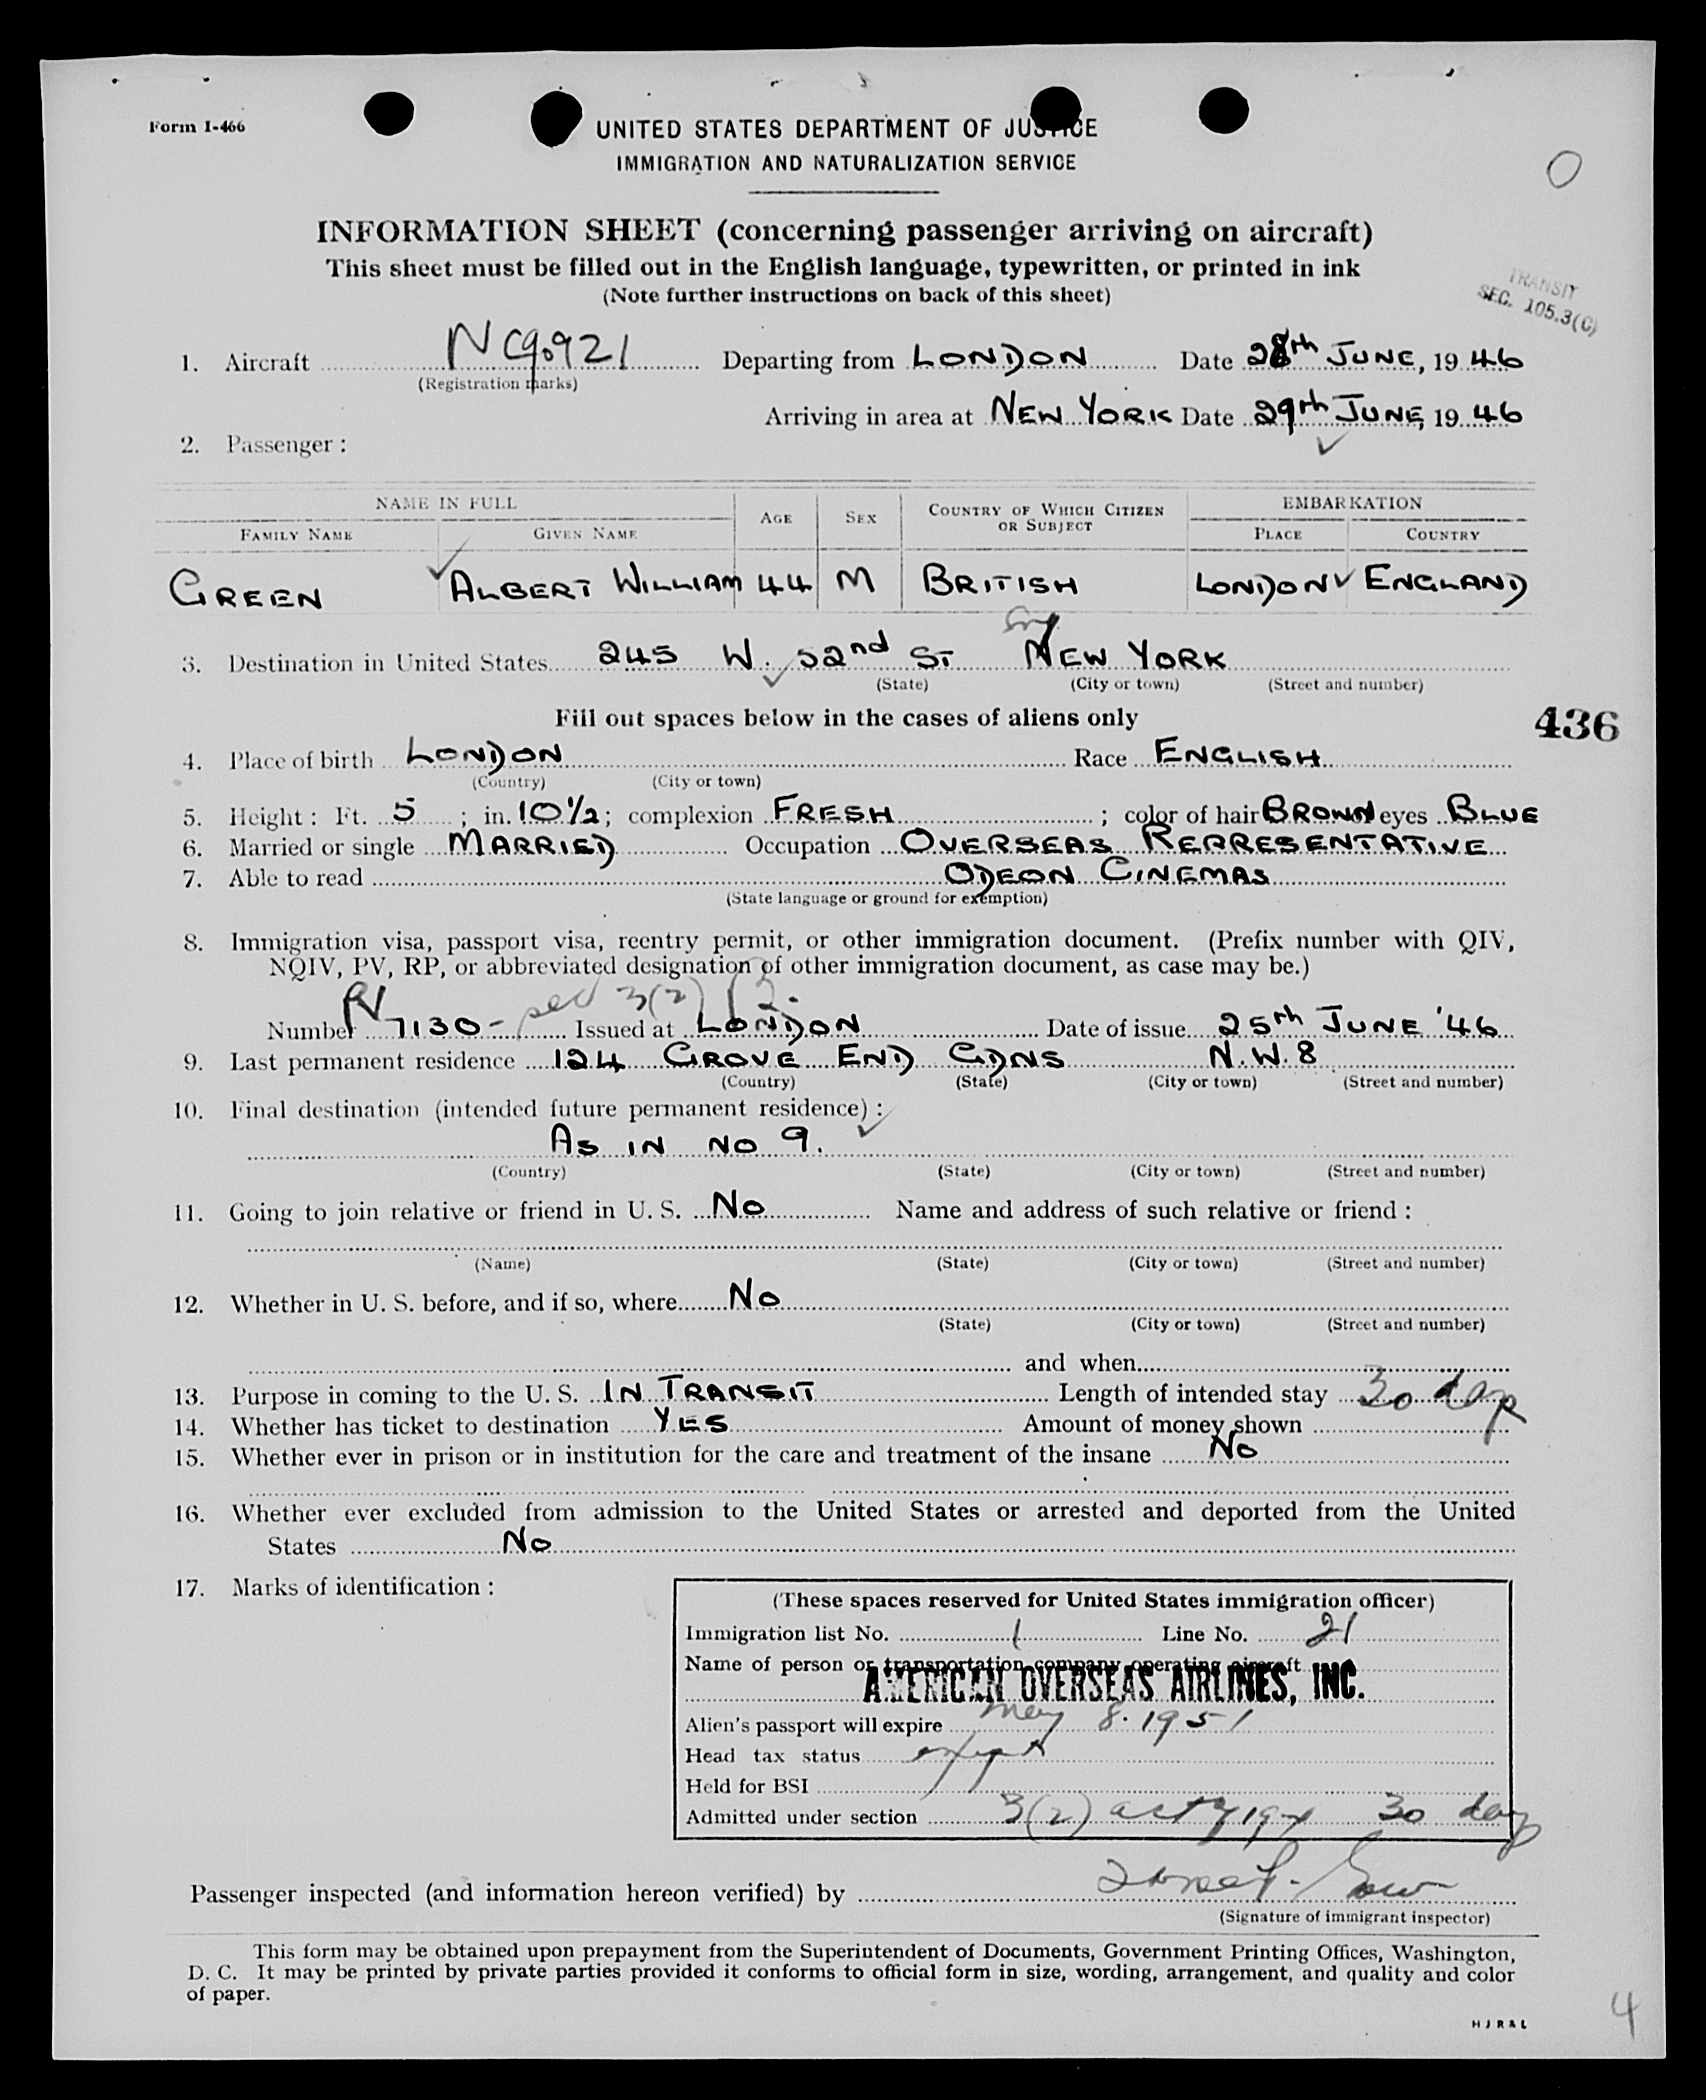 Form I-466
UNITED STATES DEPARTMENT OF JUSTICE
IMMIGRATION AND NATURALIZATION SERVICE
O
INFORMATION SHEET (concerning passenger arriving on aircraft)
This sheet must be filled out in the English language, typewritten, or printed in ink
(Note further instructions on back of this sheet)
TRANSIT
SEC. 105.3(C)
1. Aircraft NC90921 Departing from LONDON Date 28th JUNE, 1946
(Registration marks)
Arriving in area at NEW YORK Date 29th JUNE, 1946
2. Passenger :
NAME IN FULL AGE SEX COUNTRY OF WHICH CITIZEN OR SUBJECT EMBARKATION
FAMILY NAME GIVEN NAME PLACE COUNTRY
GREEN ALBERT WILLIAM 44 M BRITISH LONDON ENGLAND
Eng
3. Destination in United States 245 W. 52nd ST NEW YORK
(State) (City or town) (Street and number)
Fill out spaces below in the cases of aliens only
436
4. Place of birth LONDON Race ENGLISH
(Country) (City or town)
5. Height : Ft. 5 ; in. 10½ ; complexion FRESH ; color of hair BROWN eyes BLUE
6. Married or single MARRIED Occupation OVERSEAS REPRESENTATIVE
7. Able to read ODEON CINEMAS
(State language or ground for exemption)
8. Immigration visa, passport visa, reentry permit, or other immigration document. (Prefix number with QIV,
NQIV, PV, RP, or abbreviated designation of other immigration document, as case may be.)
PV sec 3(2)
Number 7130- Issued at LONDON Date of issue 25th JUNE '46
9. Last permanent residence 124 GROVE END GDNS N.W.8
(Country) (State) (City or town) (Street and number)
10. Final destination (intended future permanent residence) :
AS IN NO 9.
(Country) (State) (City or town) (Street and number)
11. Going to join relative or friend in U. S. NO Name and address of such relative or friend :
(Name) (State) (City or town) (Street and number)
12. Whether in U. S. before, and if so, where NO
(State) (City or town) (Street and number)
and when
13. Purpose in coming to the U. S. IN TRANSIT Length of intended stay 30 days
14. Whether has ticket to destination YES Amount of money shown
15. Whether ever in prison or in institution for the care and treatment of the insane NO
16. Whether ever excluded from admission to the United States or arrested and deported from the United
States NO
17. Marks of identification :
(These spaces reserved for United States immigration officer)
Immigration list No. 1 Line No. 21
Name of person or transportation company operating aircraft
AMERICAN OVERSEAS AIRLINES, INC.
Alien's passport will expire May 8. 1951
Head tax status exempt
Held for BSI
Admitted under section 3(2) act 1924 30 days
Passenger inspected (and information hereon verified) by
(Signature of immigrant inspector)
This form may be obtained upon prepayment from the Superintendent of Documents, Government Printing Offices, Washington,
D. C. It may be printed by private parties provided it conforms to official form in size, wording, arrangement, and quality and color
of paper.
HJR&L
4